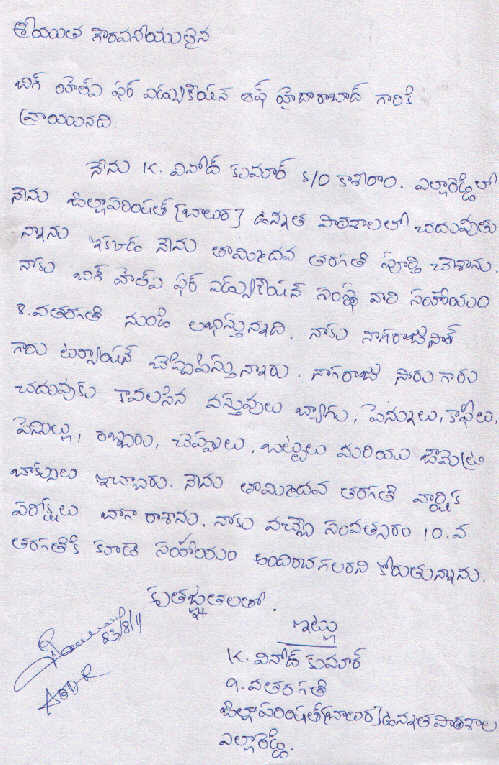 శ్రీయుత గౌరవనీయులైన
బిగ్ హెల్ప్ ఫర్ ఎడ్యుకేషన్ ఆఫ్ హైదరాబాద్ గారికి
వ్రాయునది
నేను K. వినోద్ కుమార్ S/O కాశీరాం. ఎల్లారెడ్డిలో
నేను జిల్లాపరిషత్ (బాలుర) ఉన్నత పాఠశాలలో చదువుతు
న్నాను ఇక్కడ నేను తొమ్మిదవ తరగతి పూర్తి చేశాను.
నాకు బిగ్ హెల్ప్ ఫర్ ఎడ్యుకేషన్ సంస్థ వారి సహాయం
8.వతరగతి నుండి లభిస్తున్నది. నాకు నాగరాజు
గారు ట్యూషన్ చెప్పిస్తున్నారు. నాగరాజు సారుగారు
చదువుకు కావలసిన వస్తువులు బ్యాగు, పెన్నులు, కాపీలు,
పెన్సిల్లు, రబ్బరు, చెప్పులు, బట్టలు మరియు జామెట్రి
బాక్సులు ఇచ్చారు. నేను తొమ్మిదవ తరగతి వార్షిక
పరీక్షలు బాగా రాశాను. నాకు వచ్చే సంవత్సరం 10.వ
తరగతికి కూడా సహాయం అందించగలరని కోరుతున్నాను.
కృతజ్ఞతలతో.
ఇట్లు
K. వినోద్ కుమార్
9.వతరగతి
జిల్లాపరిషత్ (బాలుర) ఉన్నత పాఠశాల
ఎల్లారెడ్డి.